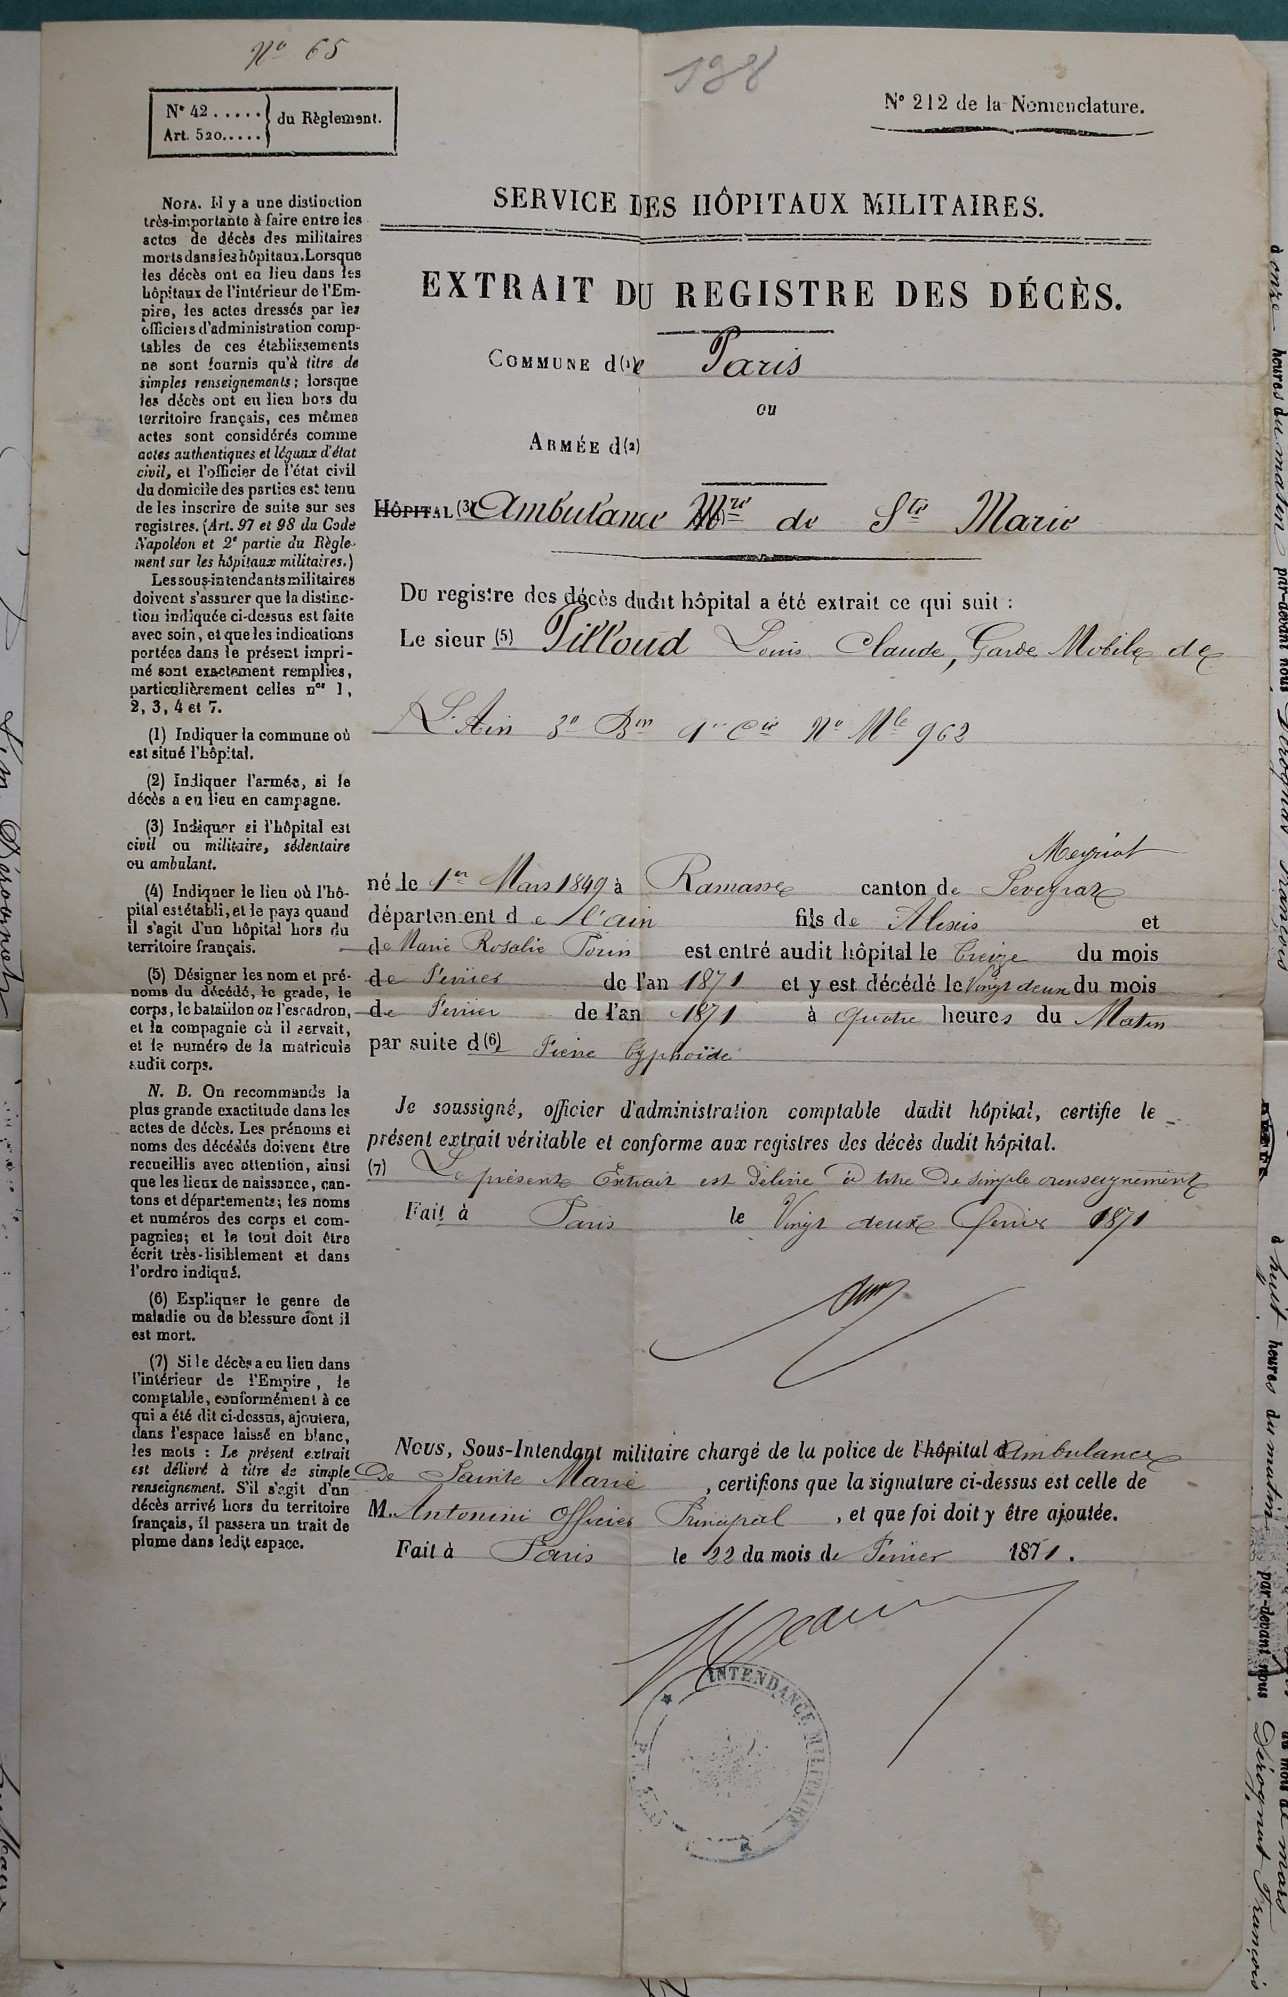 No 65
188
N° 42 ..... du Règlement.
Art. 520.....
N° 212 de la Nomenclature.
SERVICE DES HÔPITAUX MILITAIRES.
EXTRAIT DU REGISTRE DES DÉCÈS.
COMMUNE d(1)e Paris
ou
ARMÉE d(2)
HÔPITAL (3) Ambulance Mre de Ste Marie
Du registre des décès dudit hôpital a été extrait ce qui suit :
Le sieur (5) Pilloud Louis Claude, Garde Mobile de
L'Ain 3e Bon 1re Cie No Mle 962
Meyriat
né le 1er Mars 1849 à Ramasse canton de Seveyrat
département de l'ain fils de Alexis et
de Marie Rosalie est entré audit hôpital le treize du mois
de Février de l'an 1871 et y est décédé le Vingt deux du mois
de Février de l'an 1871 à quatre heures du Matin
par suite d(6) Fièvre typhoïde
Je soussigné, officier d'administration comptable dudit hôpital, certifie le
présent extrait véritable et conforme aux registres des décès dudit hôpital.
(7) Le présent Extrait est délivré à titre de simple renseignement
Fait à Paris le Vingt deux février 1871
Nous, Sous-Intendant militaire chargé de la police de l'hôpital d Ambulance
De Sainte Marie, certifions que la signature ci-dessus est celle de
M. Antonini Officier Principal, et que foi doit y être ajoutée.
Fait à Paris le 22 du mois de Février 1871.
INTENDANCE MILITAIRE
NOTA. Il y a une distinction
très-importante à faire entre les
actes de décès des militaires
morts dans les hôpitaux. Lorsque
les décès ont eu lieu dans les
hôpitaux de l'intérieur de l'Em-
pire, les actes dressés par les
officiers d'administration comp-
tables de ces établissements
ne sont fournis qu'à titre de
simples renseignements; lorsque
les décès ont eu lieu hors du
territoire français, ces mêmes
actes sont considérés comme
actes authentiques et légaux d'état
civil, et l'officier de l'état civil
du domicile des parties est tenu
de les inscrire de suite sur ses
registres. (Art. 97 et 98 du Code
Napoléon et 2e partie du Règle-
ment sur les hôpitaux militaires.)
Les sous-intendants militaires
doivent s'assurer que la distinc-
tion indiquée ci-dessus est faite
avec soin, et que les indications
portées dans le présent impri-
mé sont exactement remplies,
particulièrement celles nos 1,
2, 3, 4 et 7.
(1) Indiquer la commune où
est situé l'hôpital.
(2) Indiquer l'armée, si le
décès a eu lieu en campagne.
(3) Indiquer si l'hôpital est
civil ou militaire, sédentaire
ou ambulant.
(4) Indiquer le lieu où l'hô-
pital est établi, et le pays quand
il s'agit d'un hôpital hors du
territoire français.
(5) Désigner les nom et pré-
noms du décédé, le grade, le
corps, le bataillon ou l'escadron,
et la compagnie où il servait,
et le numéro de la matricule
audit corps.
N. B. On recommande la
plus grande exactitude dans les
actes de décès. Les prénoms et
noms des décédés doivent être
recueillis avec attention, ainsi
que les lieux de naissance, can-
tons et départements; les noms
et numéros des corps et com-
pagnies; et le tout doit être
écrit très-lisiblement et dans
l'ordre indiqué.
(6) Expliquer le genre de
maladie ou de blessure dont il
est mort.
(7) Si le décès a eu lieu dans
l'intérieur de l'Empire, le
comptable, conformément à ce
qui a été dit ci-dessus, ajoutera,
dans l'espace laissé en blanc,
les mots : Le présent extrait
est délivré à titre de simple
renseignement. S'il s'agit d'un
décès arrivé hors du territoire
français, il passera un trait de
plume dans ledit espace.
à onze heures du matin par-devant nous
à huit heures du matin par-devant nous